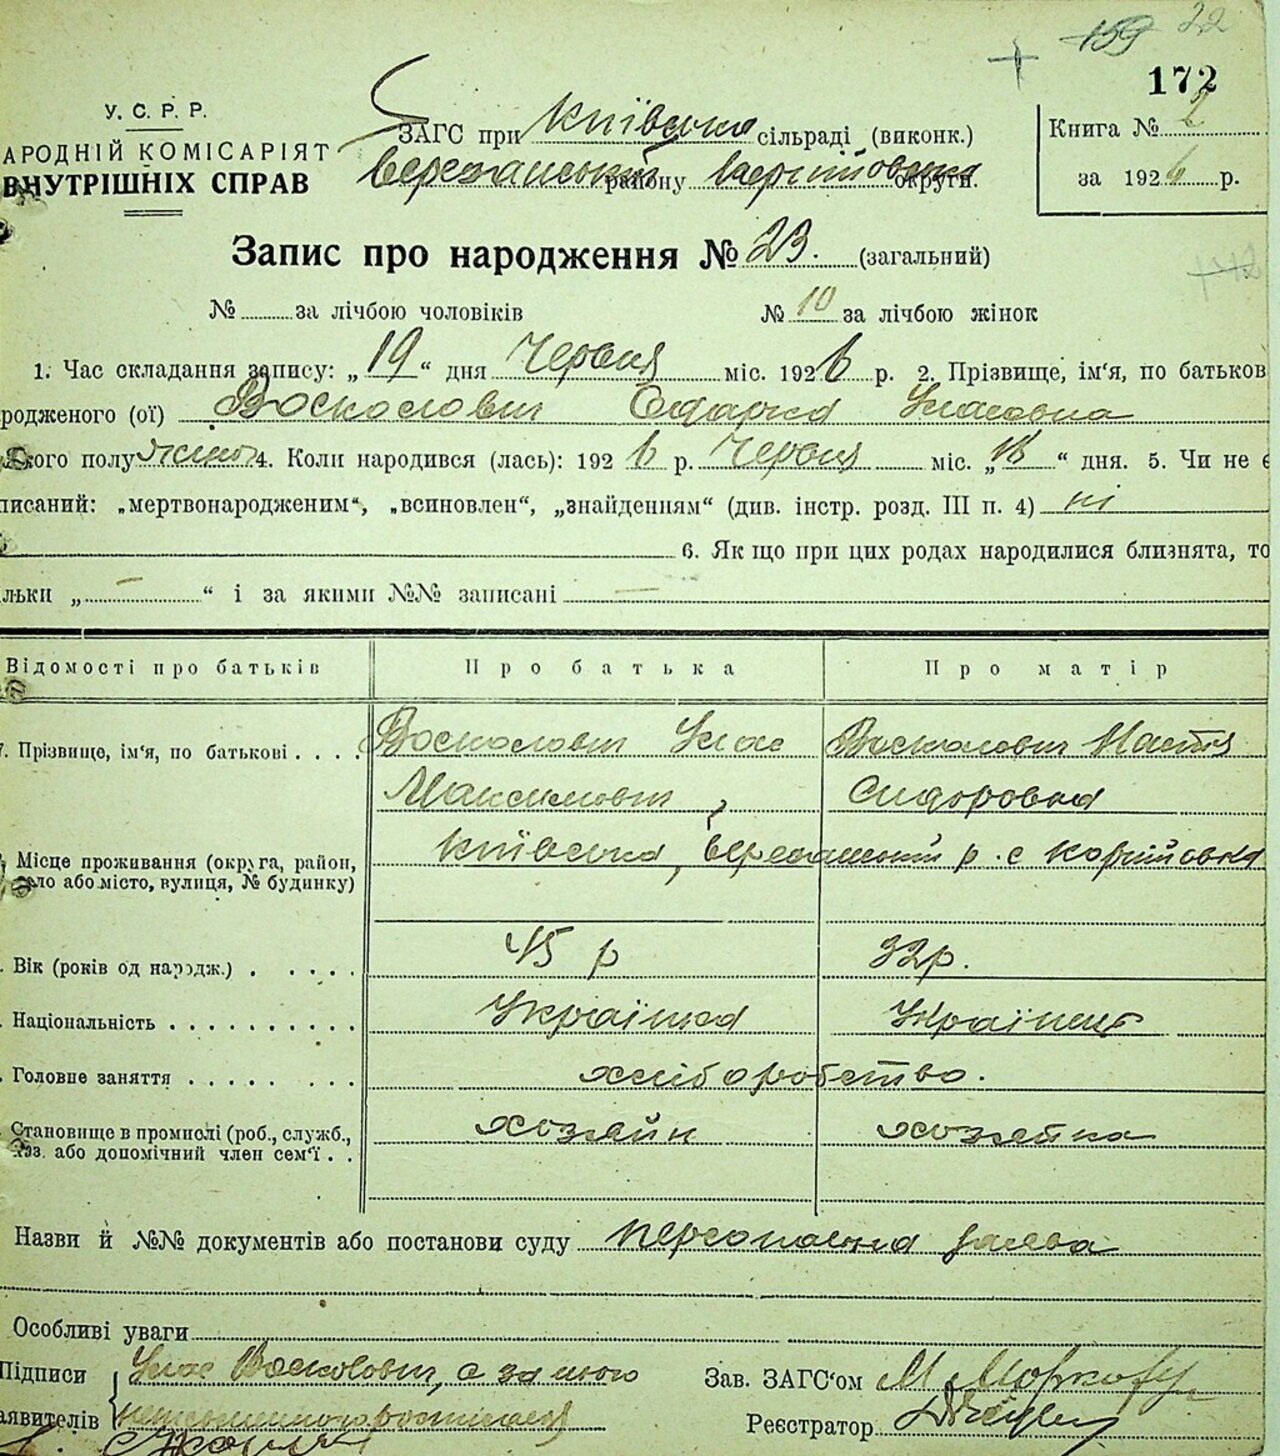 159 22
172
У. С. Р. Р.
АРОДНІЙ КОМІСАРІЯТ
ВНУТРІШНІХ СПРАВ
ЗАГС при Київська сільраді (виконк.)
району округи.
Книга № 2
за 1926 р.
Запис про народження № 23. (загальний)
№ за лічбою чоловіків № 10 за лічбою жінок
1. Час складання запису: „19“ дня Червня міс. 1926 р. 2. Прізвище, ім‘я, по батьков
родженого (ої) Восколович Одарка Уласовна
кого полу жіноч 4. Коли народився (лась): 1926 р. Червня міс. „18“ дня. 5. Чи не є
писаний: „мертвонародженим“, „всиновлен“, „знайденням“ (див. інстр. розд. III п. 4) ні
6. Як що при цих родах народилися близнята, то
льки „ — “ і за якими №№ записані —
Відомості про батьків Про батька Про матір
7. Прізвище, ім‘я, по батькові . . . . Восколович Улас Восколович Настя
Максимович Сидоровна
Місце проживання (округа, район, село або місто, вулиця, № будинку) Київська, р. с
. Вік (років од народж.) . . . . . 45 р 32р.
. Національність . . . . . . . . . . Українка Українець
. Головне заняття . . . . . . . . хліборобство.
. Становище в промислі (роб., служб., хаз. або допомічний член сем‘ї . . хозяїн хозяйка
Назви й №№ документів або постанови суду персональна заява
Особливі уваги
Підписи Улас Воскович, а за його
аявителів неписьменного росписався
Зав. ЗАГС‘ом М
Реєстратор